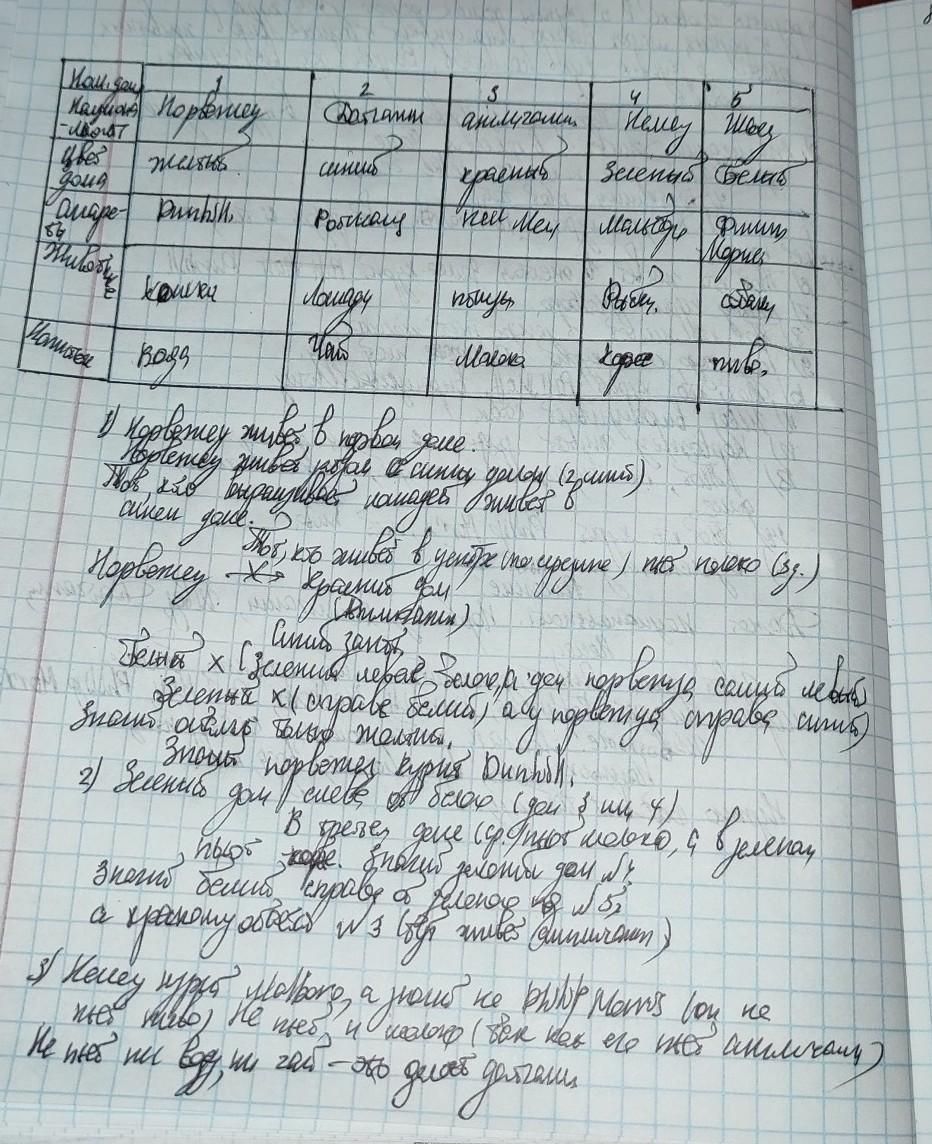 Ном. дом 1 2 3 4 5
Национ Норвежец Датчанин англичанин Немец Швед
-льност
Цвет желтый синий красный Зеленый Белый
дома
сигаре- Dunhill. Ротманц Пел Мел Мальборо Филип
ты Моррис
Животных кошки Лошади птицы Рыбки. собаки
Напитки вода Чай Молоко кофе пиво.
1) Норвежец живет в первом доме.
Норвежец живет рядом с синим домом (2, синий)
Тот, кто выращивает лошадей живет в
синем доме.
Тот, кто живет в центре (по средине) пьет молоко (3д.)
Норвежец -X-> Красный дом
(Англичанин)
Синий занят
Белый X (Зелений левее белого, а дом норвежца самый левый
Зеленый X (справа белий) а у норвежца справа синий)
Значит остался только желтый.
Значит норвежец курит Dunhill.
2) Зелений дом слева от белого (дом 3 или 4)
В третем доме (ср.) пьют молоко, а в зеленом
пьют кофе. Значит зеленый дом №4
Значит белий справа от зеленого №5,
а красному остаёт №3 (тут живет англичанин)
3) Немец курит Malboro, а значит не Philip Morris (он не
пьет пиво) Не пьет и молоко (так как его пьет англичанин)
Не пьет ни воду, ни чай - это делает датчанин